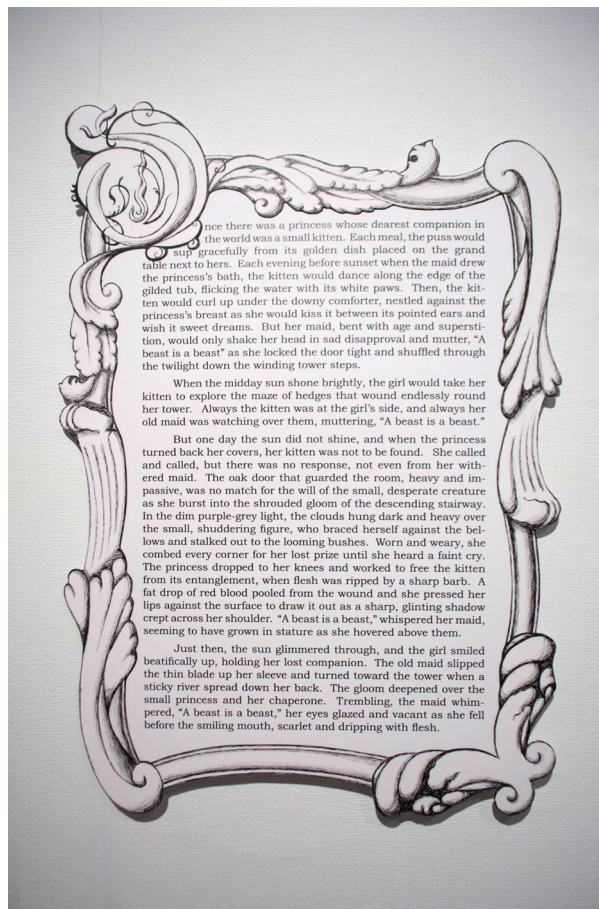 Once there was a princess whose dearest companion in
the world was a small kitten. Each meal, the puss would
sup gracefully from its golden dish placed on the grand
table next to hers. Each evening before sunset when the maid drew
the princess's bath, the kitten would dance along the edge of the
gilded tub, flicking the water with its white paws. Then, the kit-
ten would curl up under the downy comforter, nestled against the
princess's breast as she would kiss it between its pointed ears and
wish it sweet dreams. But her maid, bent with age and supersti-
tion, would only shake her head in sad disapproval and mutter, "A
beast is a beast" as she locked the door tight and shuffled through
the twilight down the winding tower steps.
When the midday sun shone brightly, the girl would take her
kitten to explore the maze of hedges that wound endlessly round
her tower. Always the kitten was at the girl's side, and always her
old maid was watching over them, muttering, "A beast is a beast."
But one day the sun did not shine, and when the princess
turned back her covers, her kitten was not to be found. She called
and called, but there was no response, not even from her with-
ered maid. The oak door that guarded the room, heavy and im-
passive, was no match for the will of the small, desperate creature
as she burst into the shrouded gloom of the descending stairway.
In the dim purple-grey light, the clouds hung dark and heavy over
the small, shuddering figure, who braced herself against the bel-
lows and stalked out to the looming bushes. Worn and weary, she
combed every corner for her lost prize until she heard a faint cry.
The princess dropped to her knees and worked to free the kitten
from its entanglement, when flesh was ripped by a sharp barb. A
fat drop of red blood pooled from the wound and she pressed her
lips against the surface to draw it out as a sharp, glinting shadow
crept across her shoulder. "A beast is a beast," whispered her maid,
seeming to have grown in stature as she hovered above them.
Just then, the sun glimmered through, and the girl smiled
beatifically up, holding her lost companion. The old maid slipped
the thin blade up her sleeve and turned toward the tower when a
sticky river spread down her back. The gloom deepened over the
small princess and her chaperone. Trembling, the maid whim-
pered, "A beast is a beast," her eyes glazed and vacant as she fell
before the smiling mouth, scarlet and dripping with flesh.